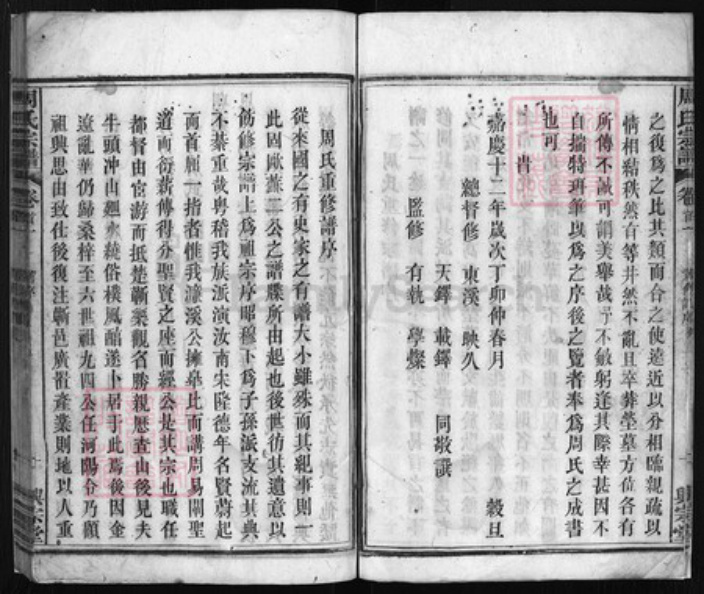 之後爲之比其類而合之使遠近以分相臨親疏以
情相結秩然有等井然不亂且卒葬塋墓方位各有
所傳不誠可謂美舉哉予不敏躬逢其際幸甚因不
自揣特班筆以爲之序後之覽者奉爲周氏之成書
也可
嘉慶十二年歲次丁卯仲春月 穀旦
總督修 東溪 映久
天鐸 載鐸 同敬譔
監修 有執 學燦
周氏重修譜序
從來國之有史家之有譜大小雖殊而其紀事則一
此固歐蘇二公之譜牒所由起也後世彷其遺意以
飭修宗譜上爲祖宗序昭穆下爲子孫派支流其典
不綦重哉粵稽我族派演汝南宋隆德年名賢蔚起
而首屈一指者惟我濂溪公擁皐比而講周易闡聖
道而衍薪傳得分聖賢之座而經公是其宗也職任
都督由官游而抵楚蘄樂觀名勝親歷查山後見夫
牛頭冲山廻水繞俗樸風醇遂卜居于此爲後因金
遼亂華仍歸桑梓至六世祖九四公任河陽令乃顧
祖興思由致仕後復注蘄邑廣置產業則地以人重
周氏宗譜
卷首一
興宗堂
FamilySearch